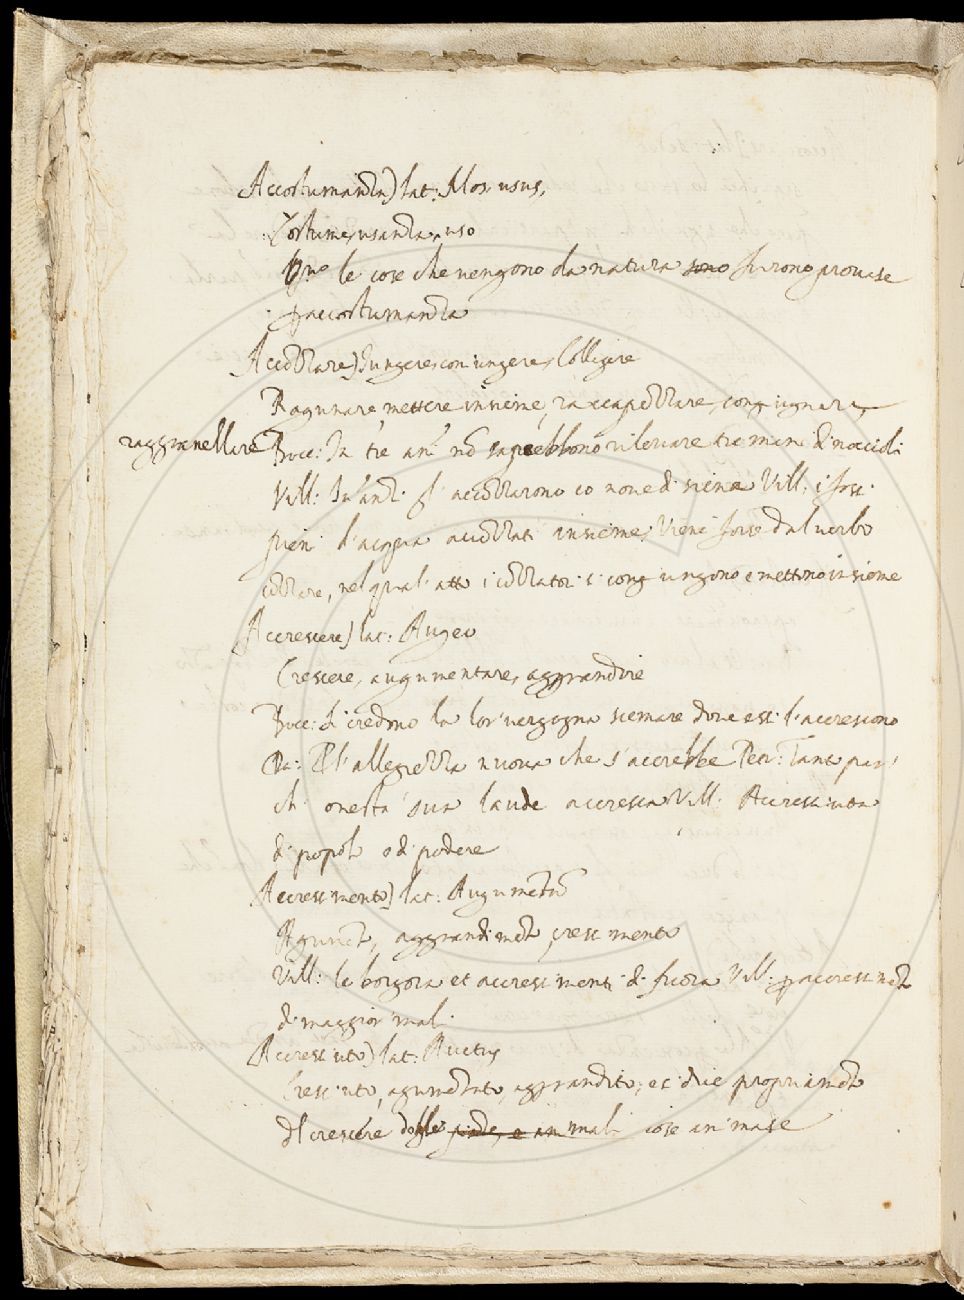 Accostumanza) lat: Mos usus,
Costume, usanza, uso
Brun le cose che vengono da natura sono furono provase
p accostumanza
Accozzare) Jungere, coniungere, Colligere
Ragunare, mettere insieme, raccapezzare, congiugnare,
raggranellare Bocc: In tre anni no saprebbono rilevare tre man di noccioli
Vill: Insanz. s' accozzarono co nove di sicina Vill: i fossi
pieni d'acqua accozzati insieme, Viene forse dal verbo
cozzare, nel qual' atto i cozzatori si congiungono e mettono insieme
Accrescere) lat: Augeo
Crescere, augumentare, aggrandire
Bocc: Si credono la lor' vergogna scemare dove essi l'accrescono
Da: P l'allegrezza nuova che s'accrebbe Petr: Tanto par'
ch' onesta sua laude accresca Vill: Accresciuta
di popolo o di podere
Accrescimento) lat: Augumentum
Agiunta, aggrandimento, crescimento
Vill: le borgora et accrescimenti di fuora Vill: p accrescimento
di maggior mali
Accresciuto) lat: Auctus
Cresciuto, agumentato, aggrandito, e si dice propriamente
del crescere delle piante, e animali cose animate